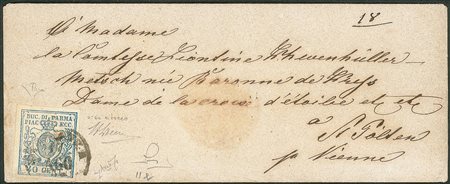 18
A Madame
la Comtesse Léontine Khevenhüller–
Metsch née Baronne de
Dame de la croix d'étoilée etc etc
à St Pölten
pr Vienne
DUC. DI PARMA
PIAC. ECC.
40 CENT.